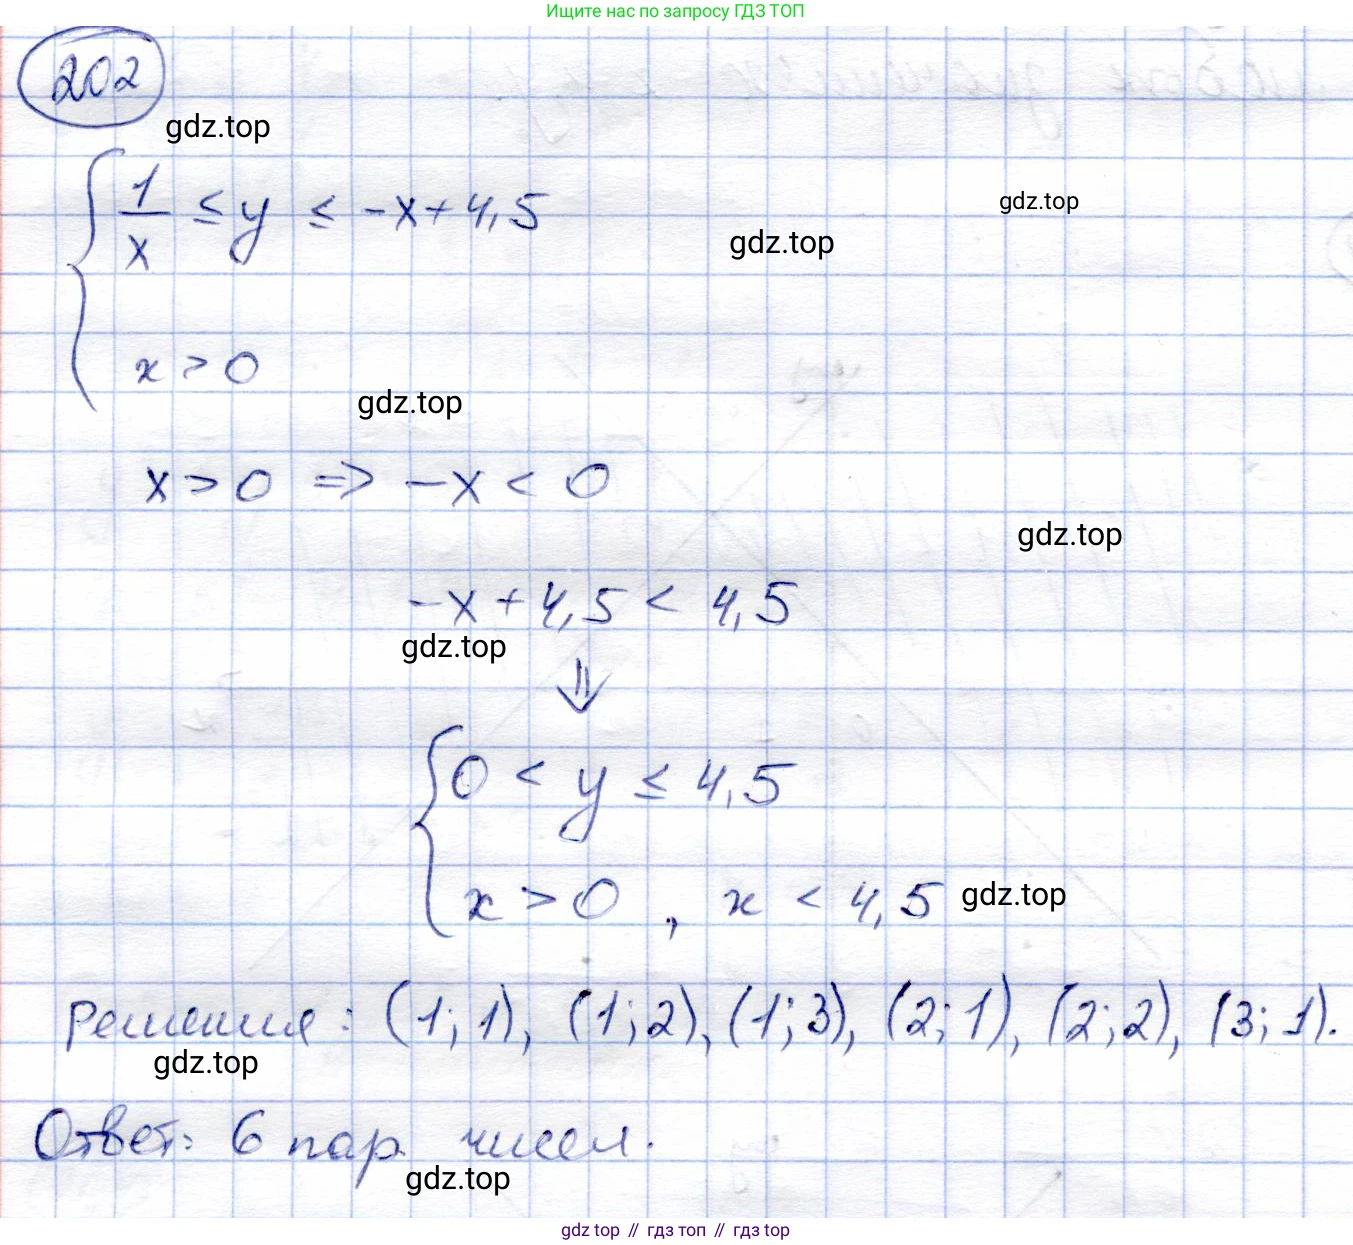 Ищите нас по запросу ГДЗ ТОП
202
gdz.top
1/x ≤ y ≤ -x+4,5
gdz.top
gdz.top
x > 0
gdz.top
x > 0 => -x < 0
gdz.top
-x + 4,5 < 4,5
gdz.top
⇓
0 < y ≤ 4,5
x > 0, x < 4,5
gdz.top
Решения: (1; 1), (1; 2), (1; 3), (2; 1), (2; 2), (3; 1).
gdz.top
Ответ: 6 пар чисел.
gdz.top
gdz top // гдз топ // гдз top